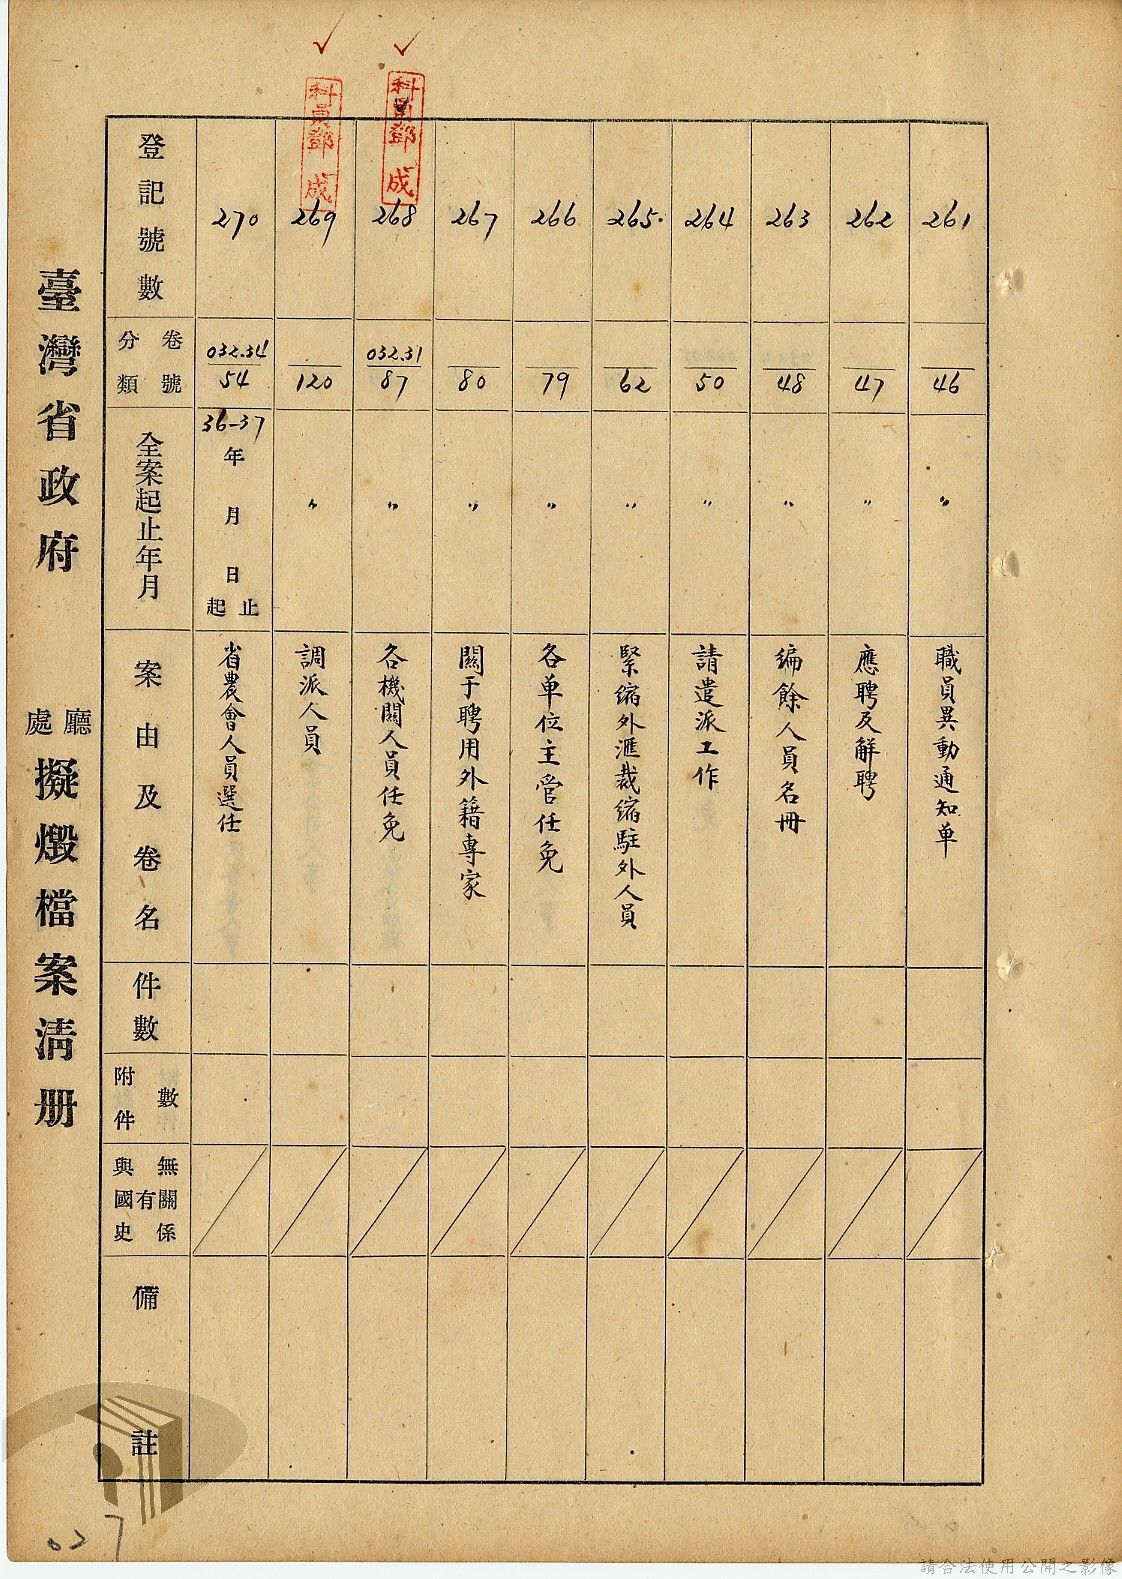 臺灣省政府 廳處 擬燬檔案清册
登記號數
分類 卷號
全案起止年月
案由及卷名
件數
附件 數
與國史 有 無關係
備註
科員鄧成
科員鄧成
270
032.34
54
36-37
年 月 日
起 止
省農會人員選任
269
120
〃
調派人員
268
032.31
87
〃
各機關人員任免
267
80
〃
關于聘用外籍專家
266
79
〃
各单位主管任免
265.
62
〃
緊缩外滙裁缩駐外人員
264
50
〃
請遣派工作
263
48
〃
编餘人員名冊
262
47
〃
應聘及解聘
261
46
〃
職員異動通知单
027
請合法使用公開之影像